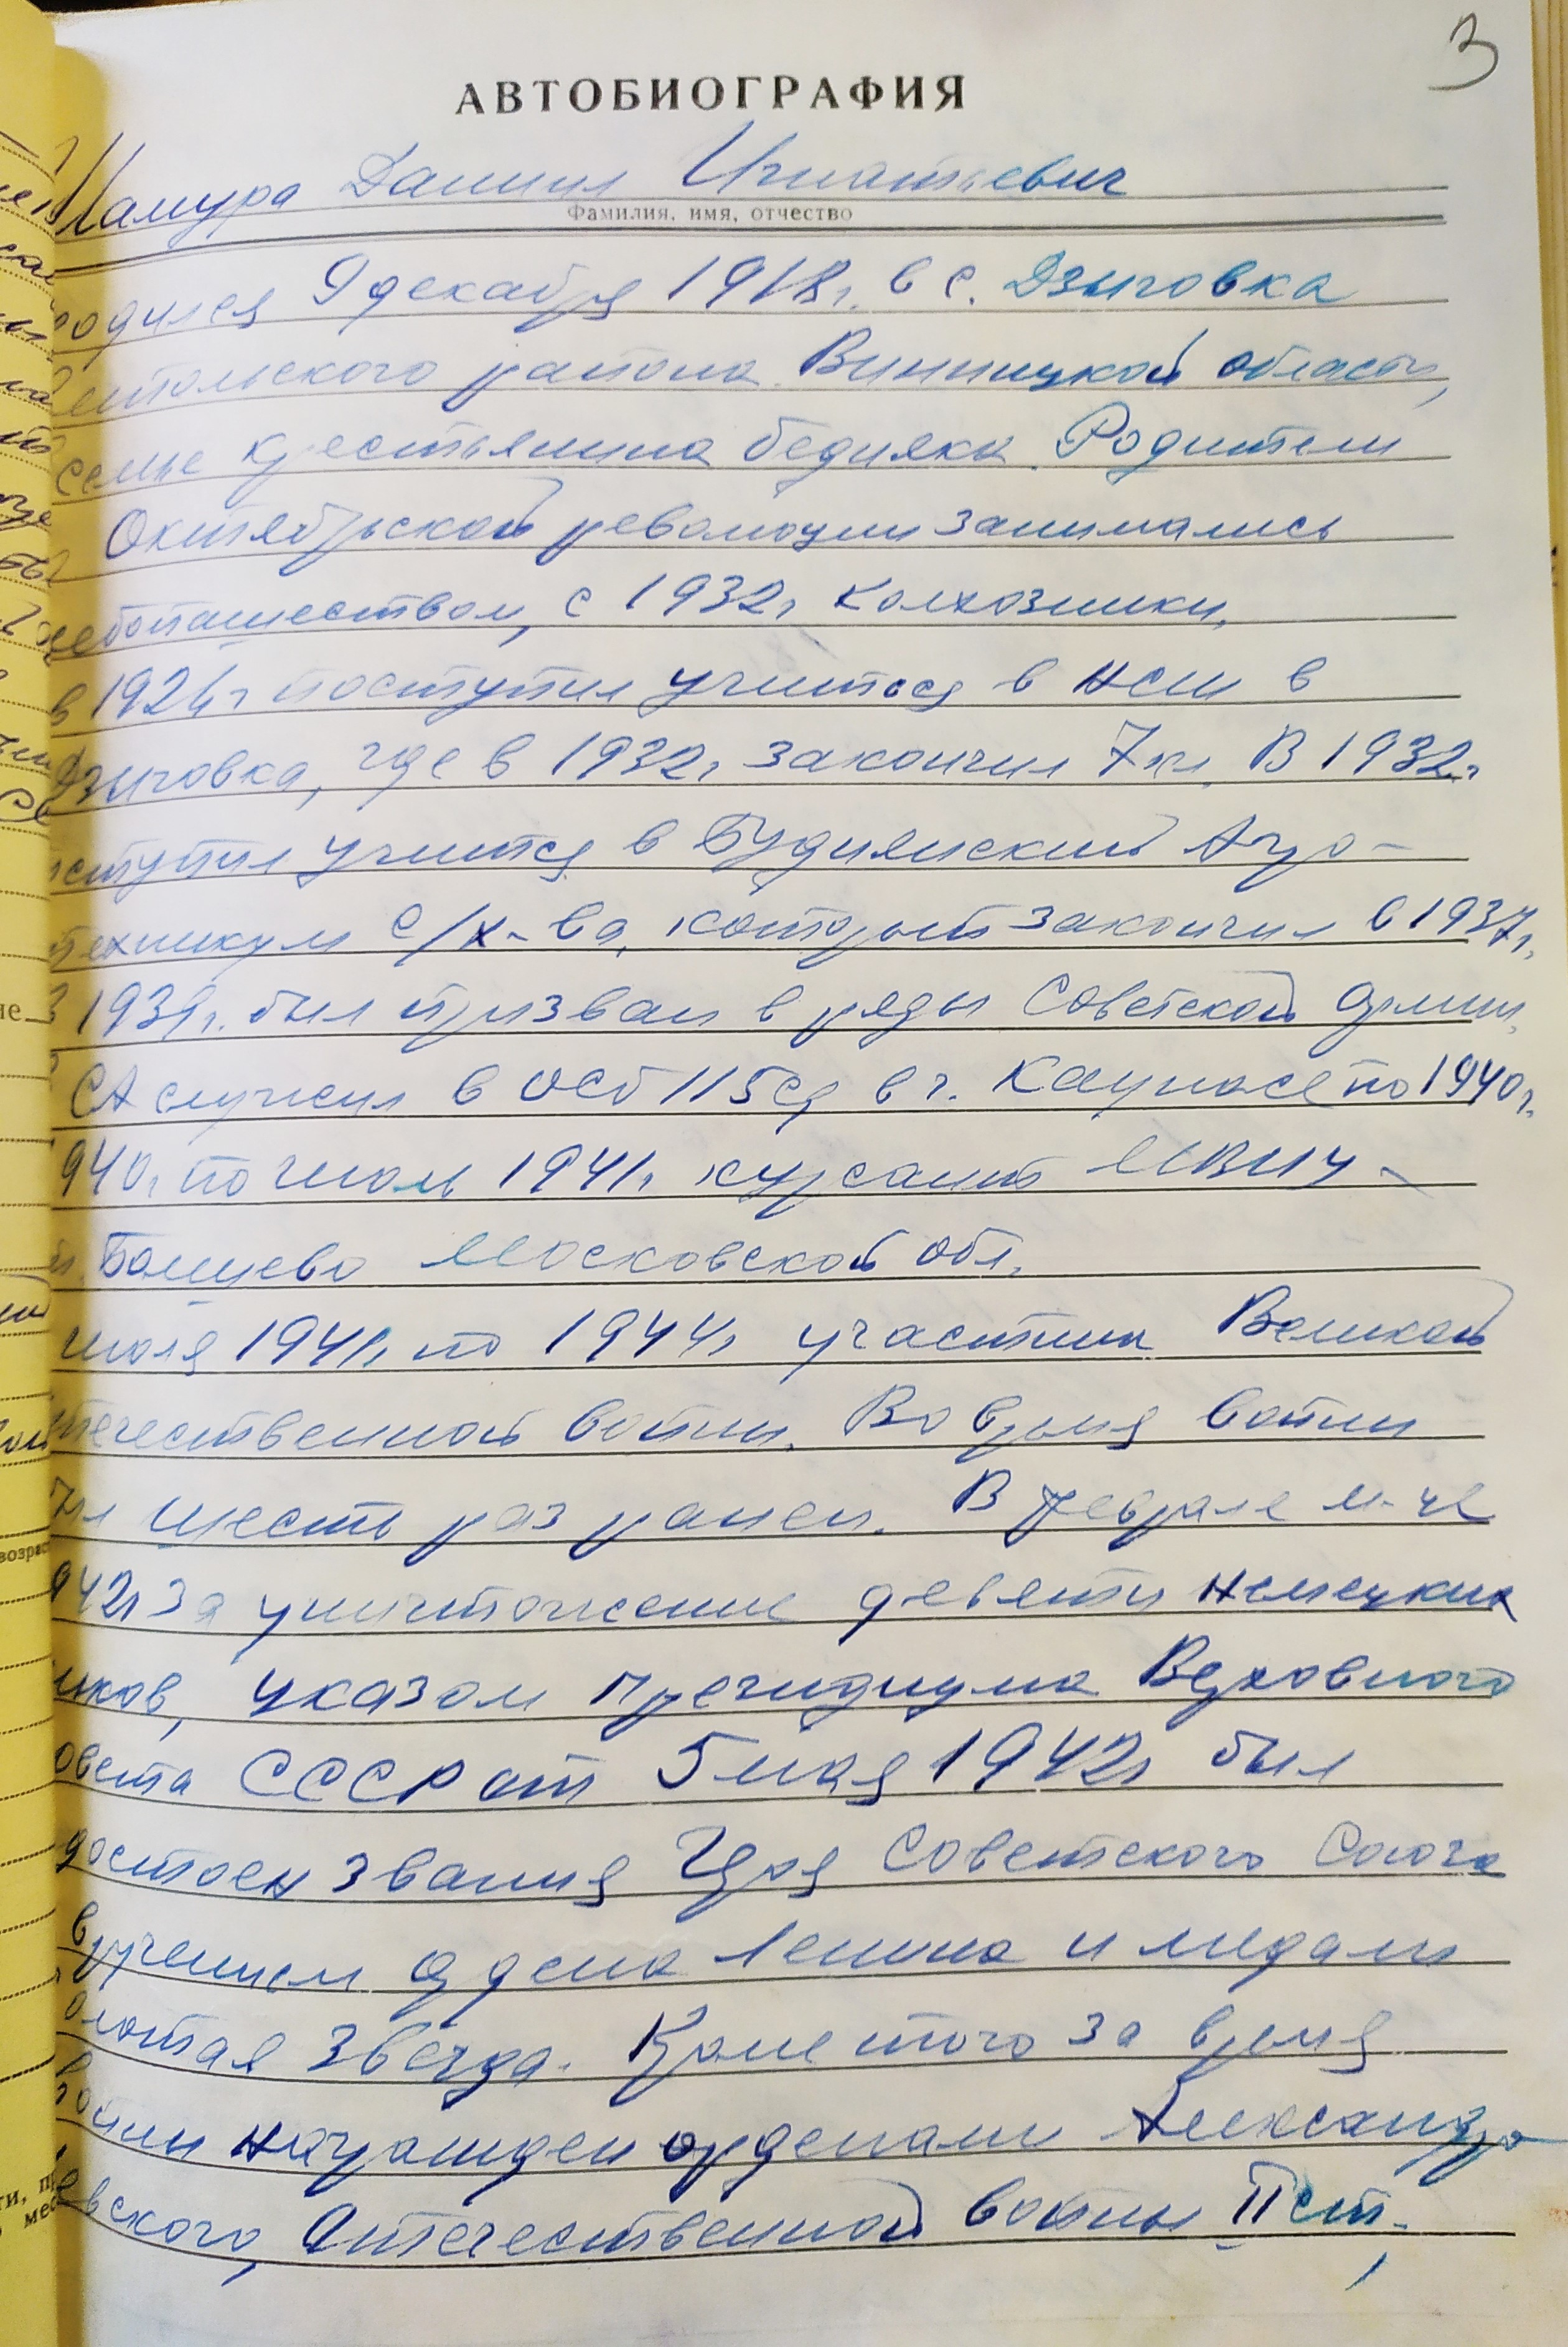 3
АВТОБИОГРАФИЯ
Шамура Данил Игнатьевич
Фамилия, имя, отчество
одился 9 декабря 1918г. в с. Дзыговка
мпольского района Винницкой области,
семье крестьянина бедняка. Родители
Октябрьской революции занимались
лебопашеством, с 1932г колхозники.
в 1924г поступил учиться в НСШ в
Дзыговка, где в 1932г закончил 7 кл. В 1932г
оступил учится в Будянский Агро-
техникум с/х-ва, который закончил в 1937г.
В 1939г. был призван в ряды Советской Армии.
СА служил в ОСБ 115сд в г. Каунасе по 1940г.
940г. по июль 1941г. курсант МВИУ -
Болшево Московской обл.
июля 1941г. по 1944г участник Великой
течественной войны. Во время войны
был шесть раз ранен. В феврале м-це
942г за уничтожение девяти немецких
нков, указом президиума Верховного
овета СССР от 5 мая 1942г был
достоен звания Героя Советского Союза
вручением ордена Ленина и медали
олотая Звезда. Кроме того за время
войны награжден орденами Александра
евского, Отечественной войны II ст.,